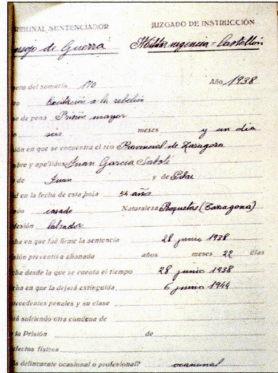 RIBUNAL SENTENCIADOR JUZGADO DE INSTRUCCIÓN
nsejo de Guerra Militar urgencia - Castellón
ero del sumario 170 Año 1938
to Excitación a la rebelión
po de pena Prisión mayor
seis meses y un día
sión en que se encuentra el reo Provincial de Zaragoza
bre y apellidos Juan García
de Juan y de Pilar
ad en la fecha de esta hoja 54 años
casado Naturaleza Boquetas (Zaragoza)
fesión labrador
ha en que fué firme la sentencia 28 junio 1938
sión preventiva abonada años meses 22 días
ha desde la que se cuenta el tiempo 28 junio 1938
cha en que la dejará extinguida 6 junio 1944
ecedentes penales y su clase
rá sufriendo otra condena de
la Prisión de
efectos físicos
delincuente ocasional o profesional? ocasional